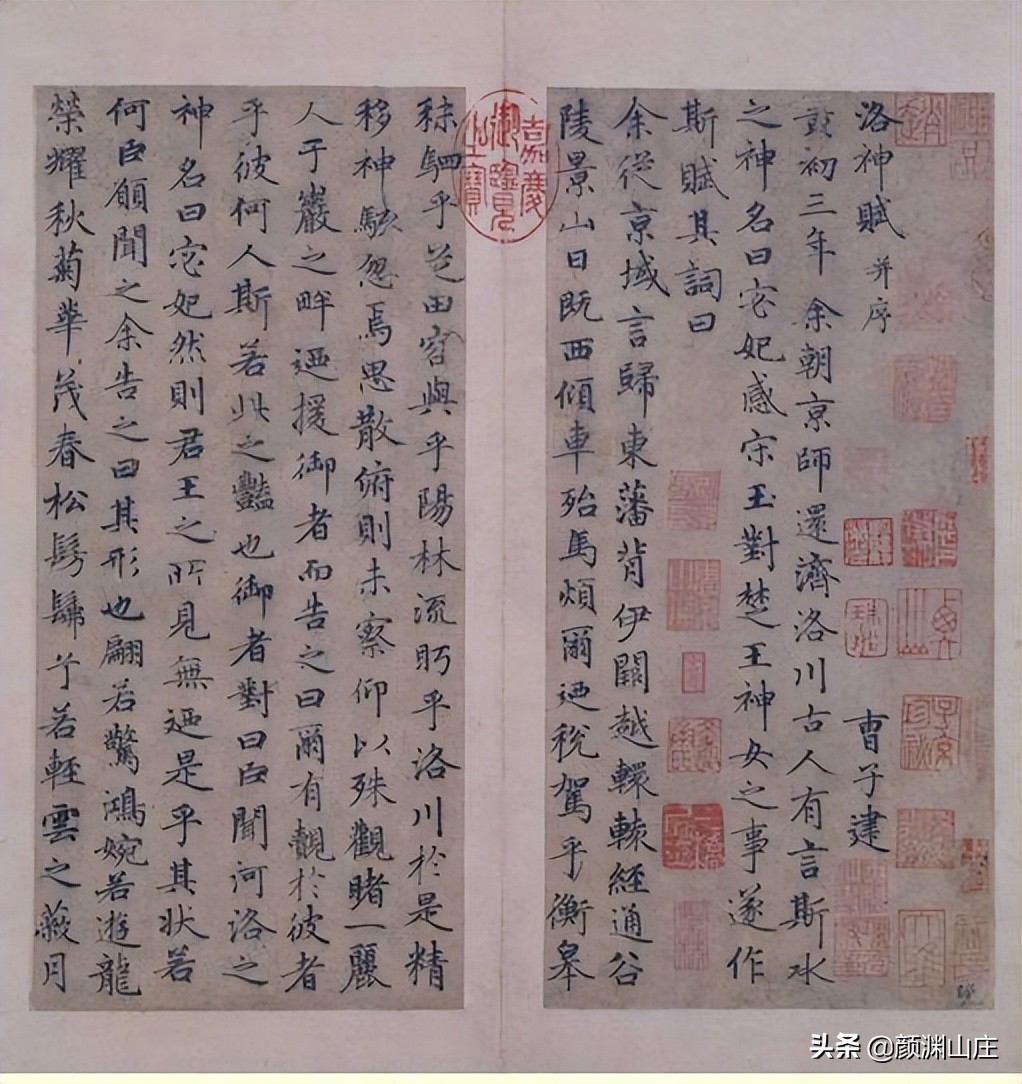 洛神賦 并序 曹子建
黃初三年 余朝京師還濟洛川古人有言斯水
之神名曰宓妃感宋玉對楚王神女之事遂作
斯賦其詞曰
余從京域言歸東藩背伊闕越轘轅經通谷
陵景山日既西傾車殆馬煩爾迺稅駕乎衡皋
嘉慶御覽之寶
秣駟乎芝田容與乎陽林流眄乎洛川於是精
移神駭忽焉思散俯則未察仰以殊觀睹一麗
人于巖之畔迺援御者而告之曰爾有覿於彼者
乎彼何人斯若此之豔也御者對曰臣聞河洛之
神名曰宓妃然則君王之所見無迺是乎其狀若
何臣願聞之余告之曰其形也翩若驚鴻婉若遊龍
榮耀秋菊華茂春松髣髴兮若輕雲之蔽月
头条 @颜渊山庄